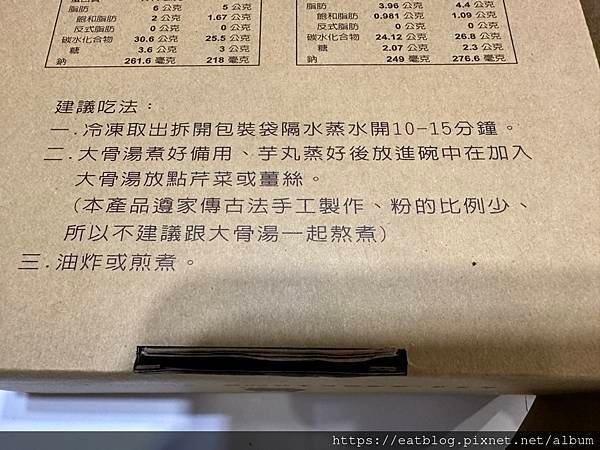 脂肪 6 公克 5 公克
飽和脂肪 2 公克 1.67 公克
反式脂肪 0 公克 0 公克
碳水化合物 30.6 公克 25.5 公克
糖 3.6 公克 3 公克
鈉 261.6 毫克 218 毫克
脂肪 3.96 公克 4.4 公克
飽和脂肪 0.981 公克 1.09 公克
反式脂肪 0 公克 0 公克
碳水化合物 24.12 公克 26.8 公克
糖 2.07 公克 2.3 公克
鈉 249 毫克 276.6 毫克
建議吃法：
一.冷凍取出拆開包裝袋隔水蒸水開10-15分鐘。
二.大骨湯煮好備用、芋丸蒸好後放進碗中在加入
大骨湯放點芹菜或薑絲。
(本產品遵家傳古法手工製作、粉的比例少、
所以不建議跟大骨湯一起熬煮)
三.油炸或煎煮。
https://eatblog.pixnet.net/album